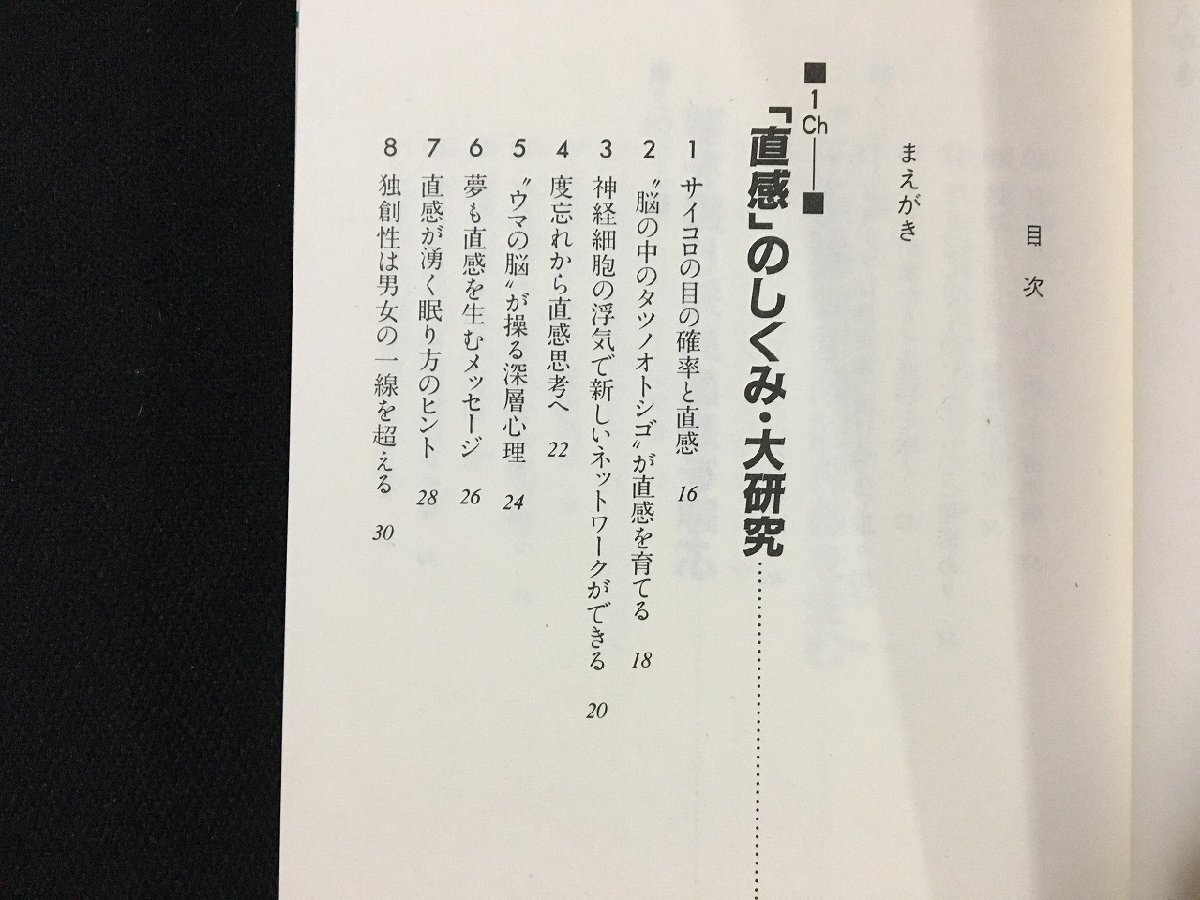 目次
まえがき
■1Ch──■
「直感」のしくみ・大研究…………
1 サイコロの目の確率と直感 16
2 〝脳の中のタツノオトシゴ〟が直感を育てる 18
3 神経細胞の浮気で新しいネットワークができる 20
4 度忘れから直感思考へ 22
5 〝ウマの脳〟が操る深層心理 24
6 夢も直感を生むメッセージ 26
7 直感が湧く眠り方のヒント 28
8 独創性は男女の一線を超える 30